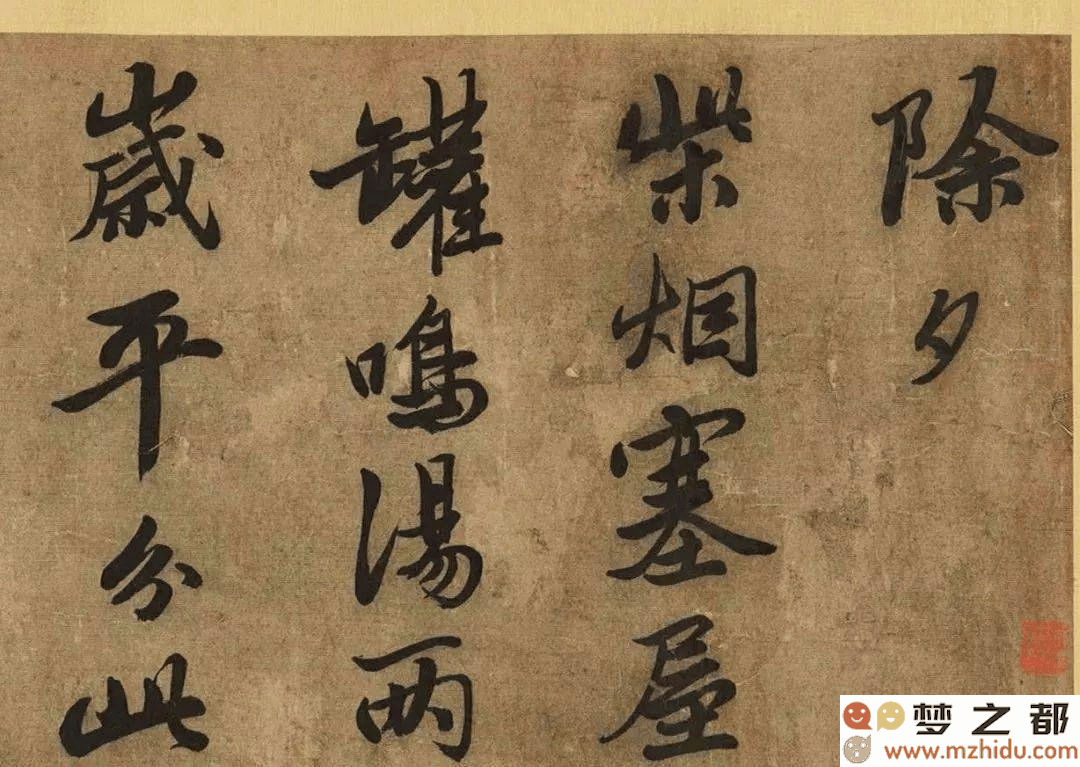 除夕
柴烟塞屋
罐鳴湯兩
歲平分此
梦之都
www.mzhidu.com